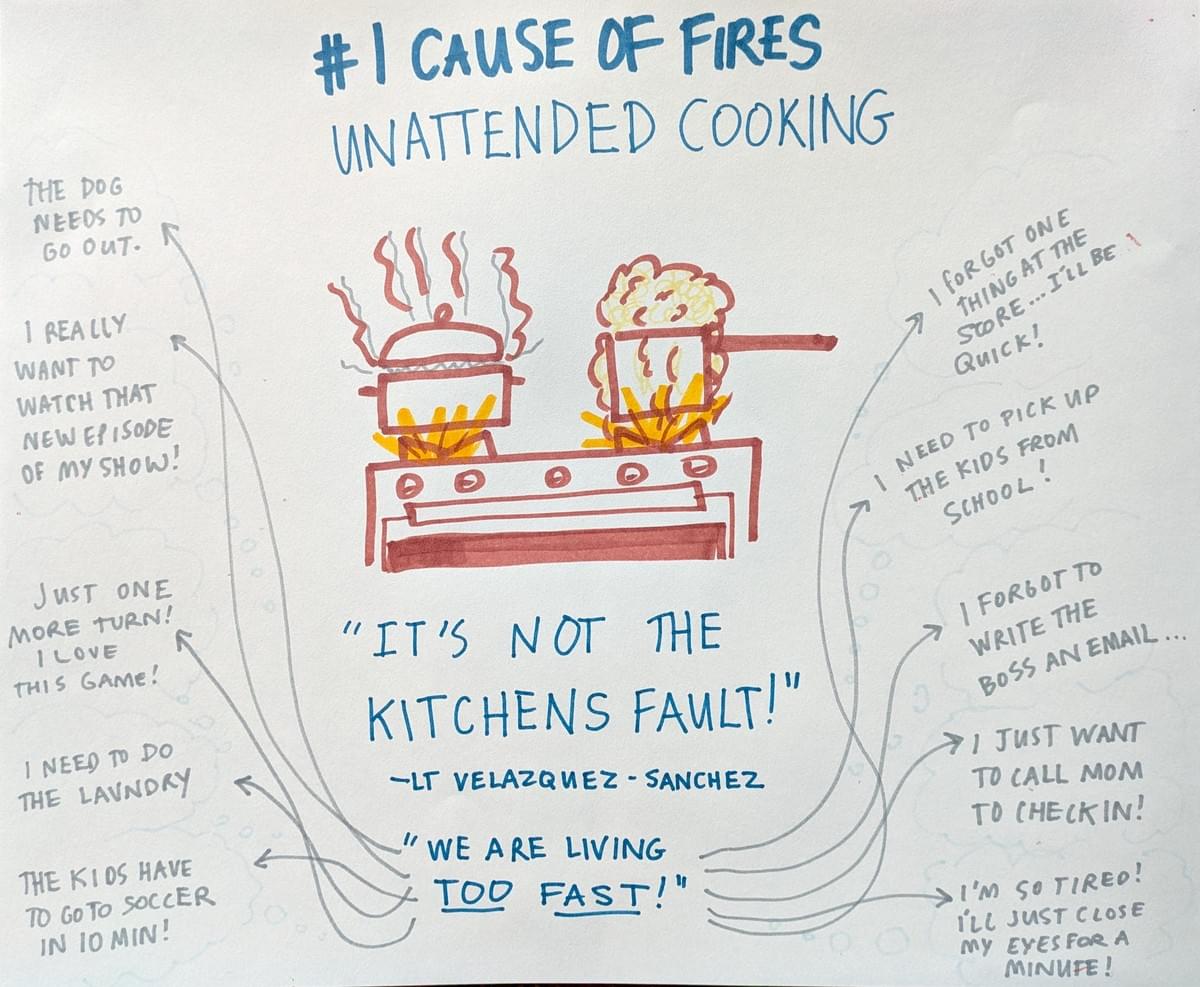 #1 CAUSE OF FIRES
UNATTENDED COOKING
THE DOG
NEEDS TO
GO OUT.
I REALLY
WANT TO
WATCH THAT
NEW EPISODE
OF MY SHOW!
JUST ONE
MORE TURN!
I LOVE
THIS GAME!
I NEED TO DO
THE LAUNDRY
THE KIDS HAVE
TO GO TO SOCCER
IN 10 MIN!
"IT'S NOT THE
KITCHENS FAULT!"
-LT VELAZQUEZ-SANCHEZ
"WE ARE LIVING
TOO FAST!"
I FORGOT ONE
THING AT THE
STORE... I'LL BE
QUICK!
I NEED TO PICK UP
THE KIDS FROM
SCHOOL!
I FORGOT TO
WRITE THE
BOSS AN EMAIL...
I JUST WANT
TO CALL MOM
TO CHECK IN!
I'M SO TIRED!
I'LL JUST CLOSE
MY EYES FOR A
MINUTE!